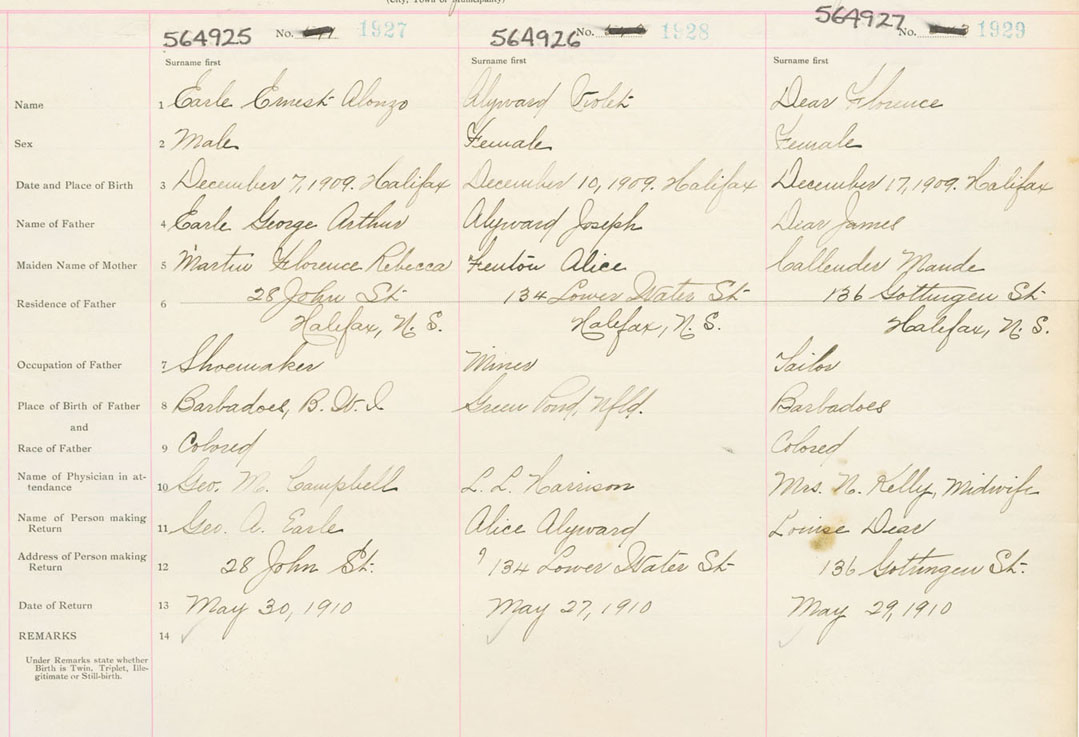 (City, Town or Municipality)
564925 No. 1927 564926 No. 1928 564927 No. 1929
Surname first Surname first Surname first
Name 1 Earle Ernest Alonzo Alyward Violet Dear Florence
Sex 2 Male Female Female
Date and Place of Birth 3 December 7, 1909. Halifax December 10, 1909. Halifax December 17, 1909. Halifax
Name of Father 4 Earle George Arthur Alyward Joseph Dear James
Maiden Name of Mother 5 Martin Florence Rebecca Fenton Alice Callender Maude
Residence of Father 6 28 John St 134 Lower Water St 136 Gottingen St
Halifax, N. S. Halifax, N. S. Halifax, N. S.
Occupation of Father 7 Shoemaker Miner Tailor
Place of Birth of Father 8 Barbadoes, B. W. I Green Pond, Nfld. Barbadoes
and
Race of Father 9 Colored Colored
Name of Physician in at-
tendance 10 Geo. M. Campbell L. L. Harrison Mrs. N. Kelly, Midwife
Name of Person making
Return 11 Geo. A. Earle Alice Alyward Louise Dear
Address of Person making
Return 12 28 John St. 134 Lower Water St 136 Gottingen St.
Date of Return 13 May 30, 1910 May 27, 1910 May 29, 1910
REMARKS 14
Under Remarks state whether
Birth is Twin, Triplet, Ille-
gitimate or Still-birth.